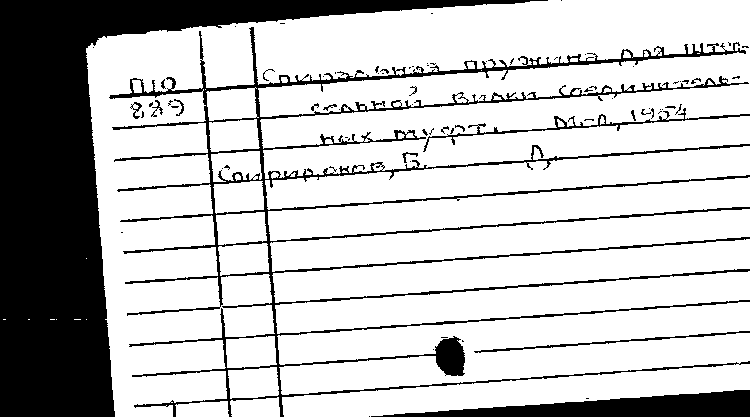 ПЮ Спиральная пружина для штеп-
889 сельной вилки соединитель-
ных муфт. М.-Л., 1954
Спиридонов, Б. Д.